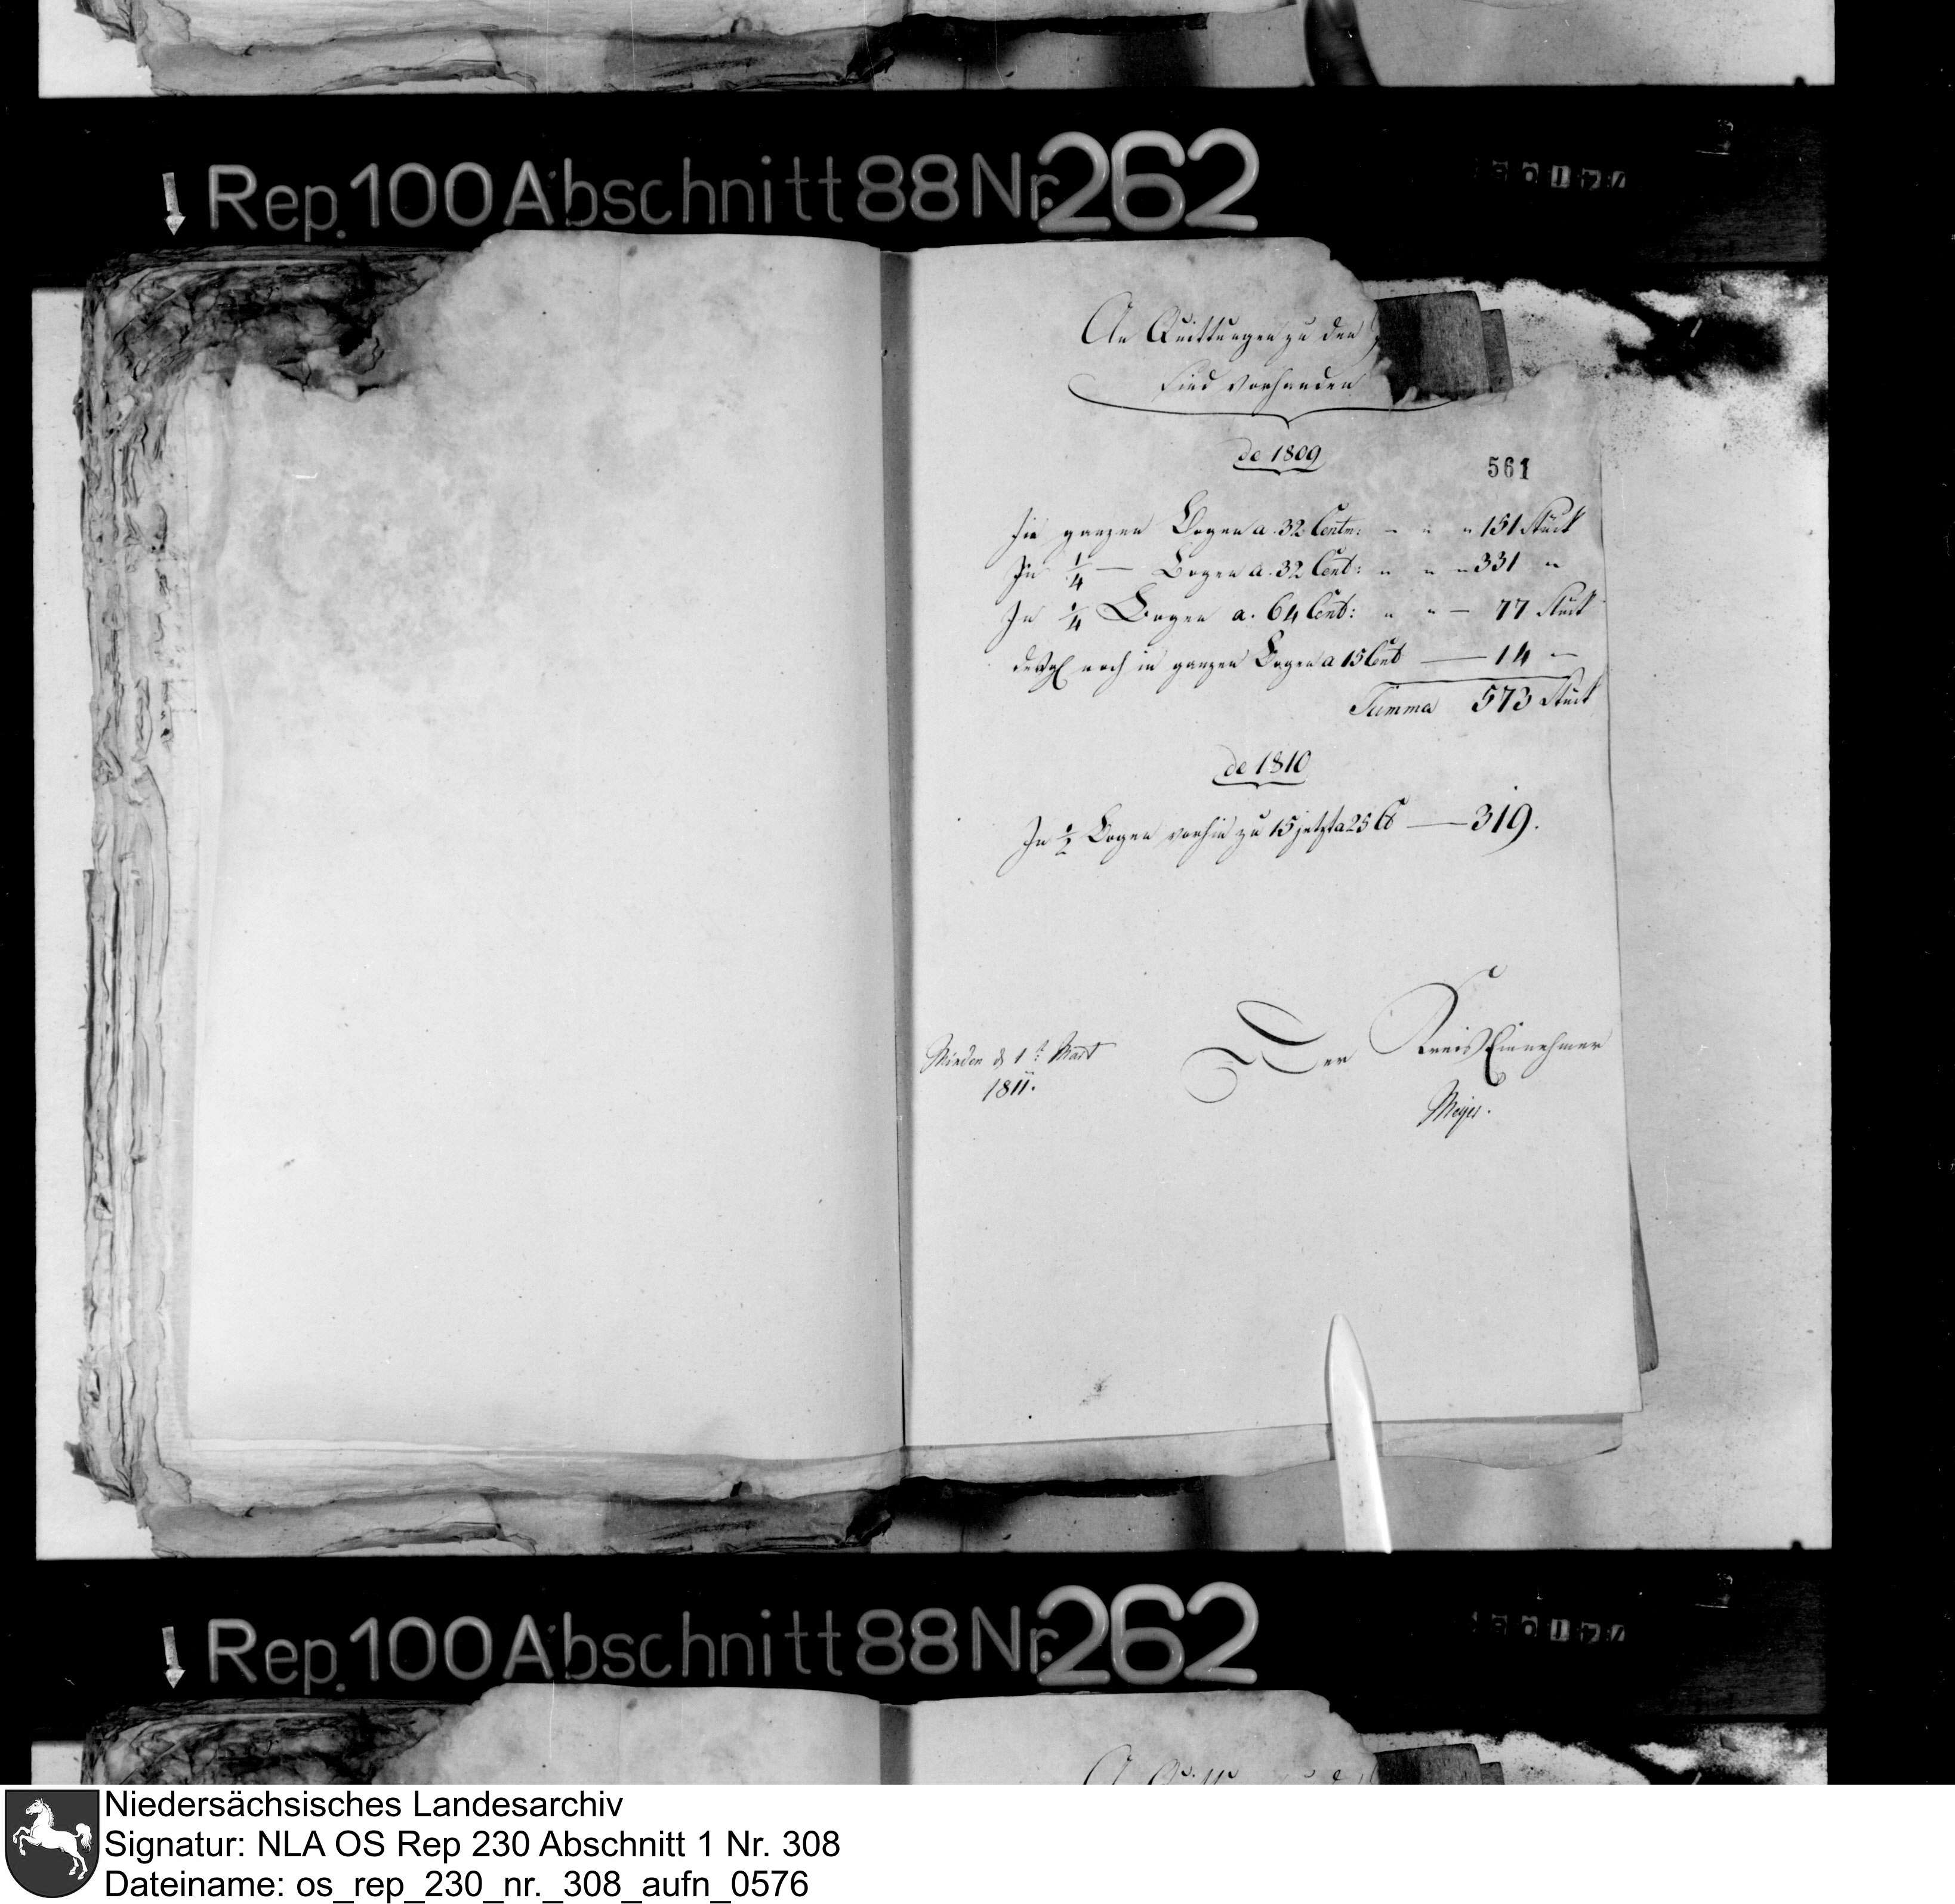 Rep. 100 Abschnitt 88 Nr. 262
An Quittungen zu den
sind vorhanden
de 1809
561
Zu ganzen Bogen a. 32 Centm: - " " 151 Stück
In 1/4 — Bogen a. 32 Cent: " " " 331 "
In 1/4 Bogen a. 64 Cent: " " — 77 Stück
noch in ganzen Bogen a 15 Cent — 14 "
Summa 573 Stück
de 1810
In 1/2 Bogen vorhin zu 15 jetzt a 25 Ct — 319.
Minden d 1t Mart
1811.
Der Kreis Einnehmer
Meyer.
Rep. 100 Abschnitt 88 Nr. 262
Niedersächsisches Landesarchiv
Signatur: NLA OS Rep 230 Abschnitt 1 Nr. 308
Dateiname: os_rep_230_nr._308_aufn_0576